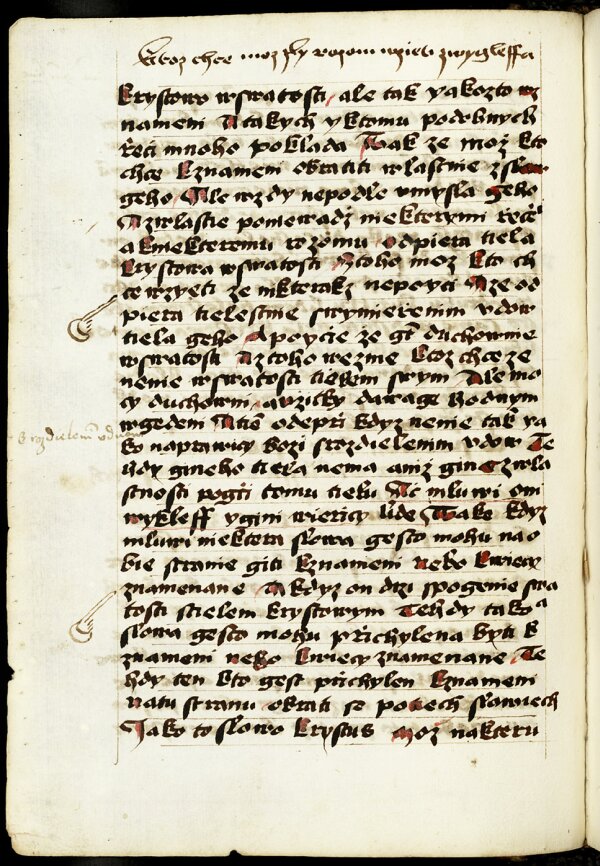 ktoz chce moz zly rozom wzieti z wygleffa
krystowo w swatosti ale tak yakozto wz
nameni A takych y k tomu podobnych
řeči mnoho poklada Tak ze moż kto
chce k znameni obratiti wlastnie z slow
geho Ale wzdy nepodle vmysla geho
A zwlastie poniewadż niekterymi řeč
a k niekteromu rozomu odpiera tiela
krystowa w swatosti A toho moz kto ch
ce wzyeti ze nikterakz nepoyci A ze od
piera tielestnie s wymierenim vdow
tiela geho A poycie ze gt duchownie
w swatosti A z toho wezme ktoz chce ze
nenie w swatosti tielem swym Ale mo
cy duchowni a vzitky dawage hodnym
w gedeni A tiem odepři kdyz nenie tak ya
ko naprawicy bozi s rozdielenim vdow Te
hdy gineho tiela nema aniż ginac zwla
stnosti pogti tomu tielu Ac mluwi on
wykleff y gini wiericy lide Take kdyz
mluwi niektera slowa gesto mohu na o
bie stranie giti k znameni nebo k wiecy
znamenane A kdyz on drzi spogenie swa
tosti s tielem krystowym Tehdy tako
slowa gesto mohu přichylena byti k
znameni neko k wiecy znamenane Te
hdy ten kto gest přichylen k znameni
na tu stranu obrati se po tiech slowiech
Jako to slowo krystus moż na kteru